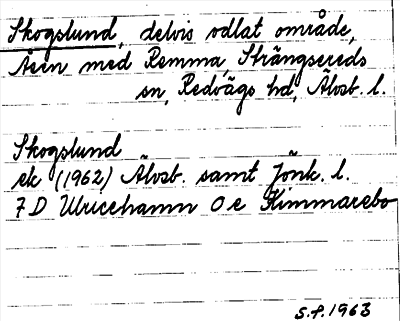 Skogslund, delvis odlat område,
även med Remma, Strängsereds
sn, Redvägs hd, Älvsb. l.
Skogslund
ek (1962) Älvsb. samt Jönk. l.
7D Ulricehamn 0e Kimmarebo
S.F. 1963